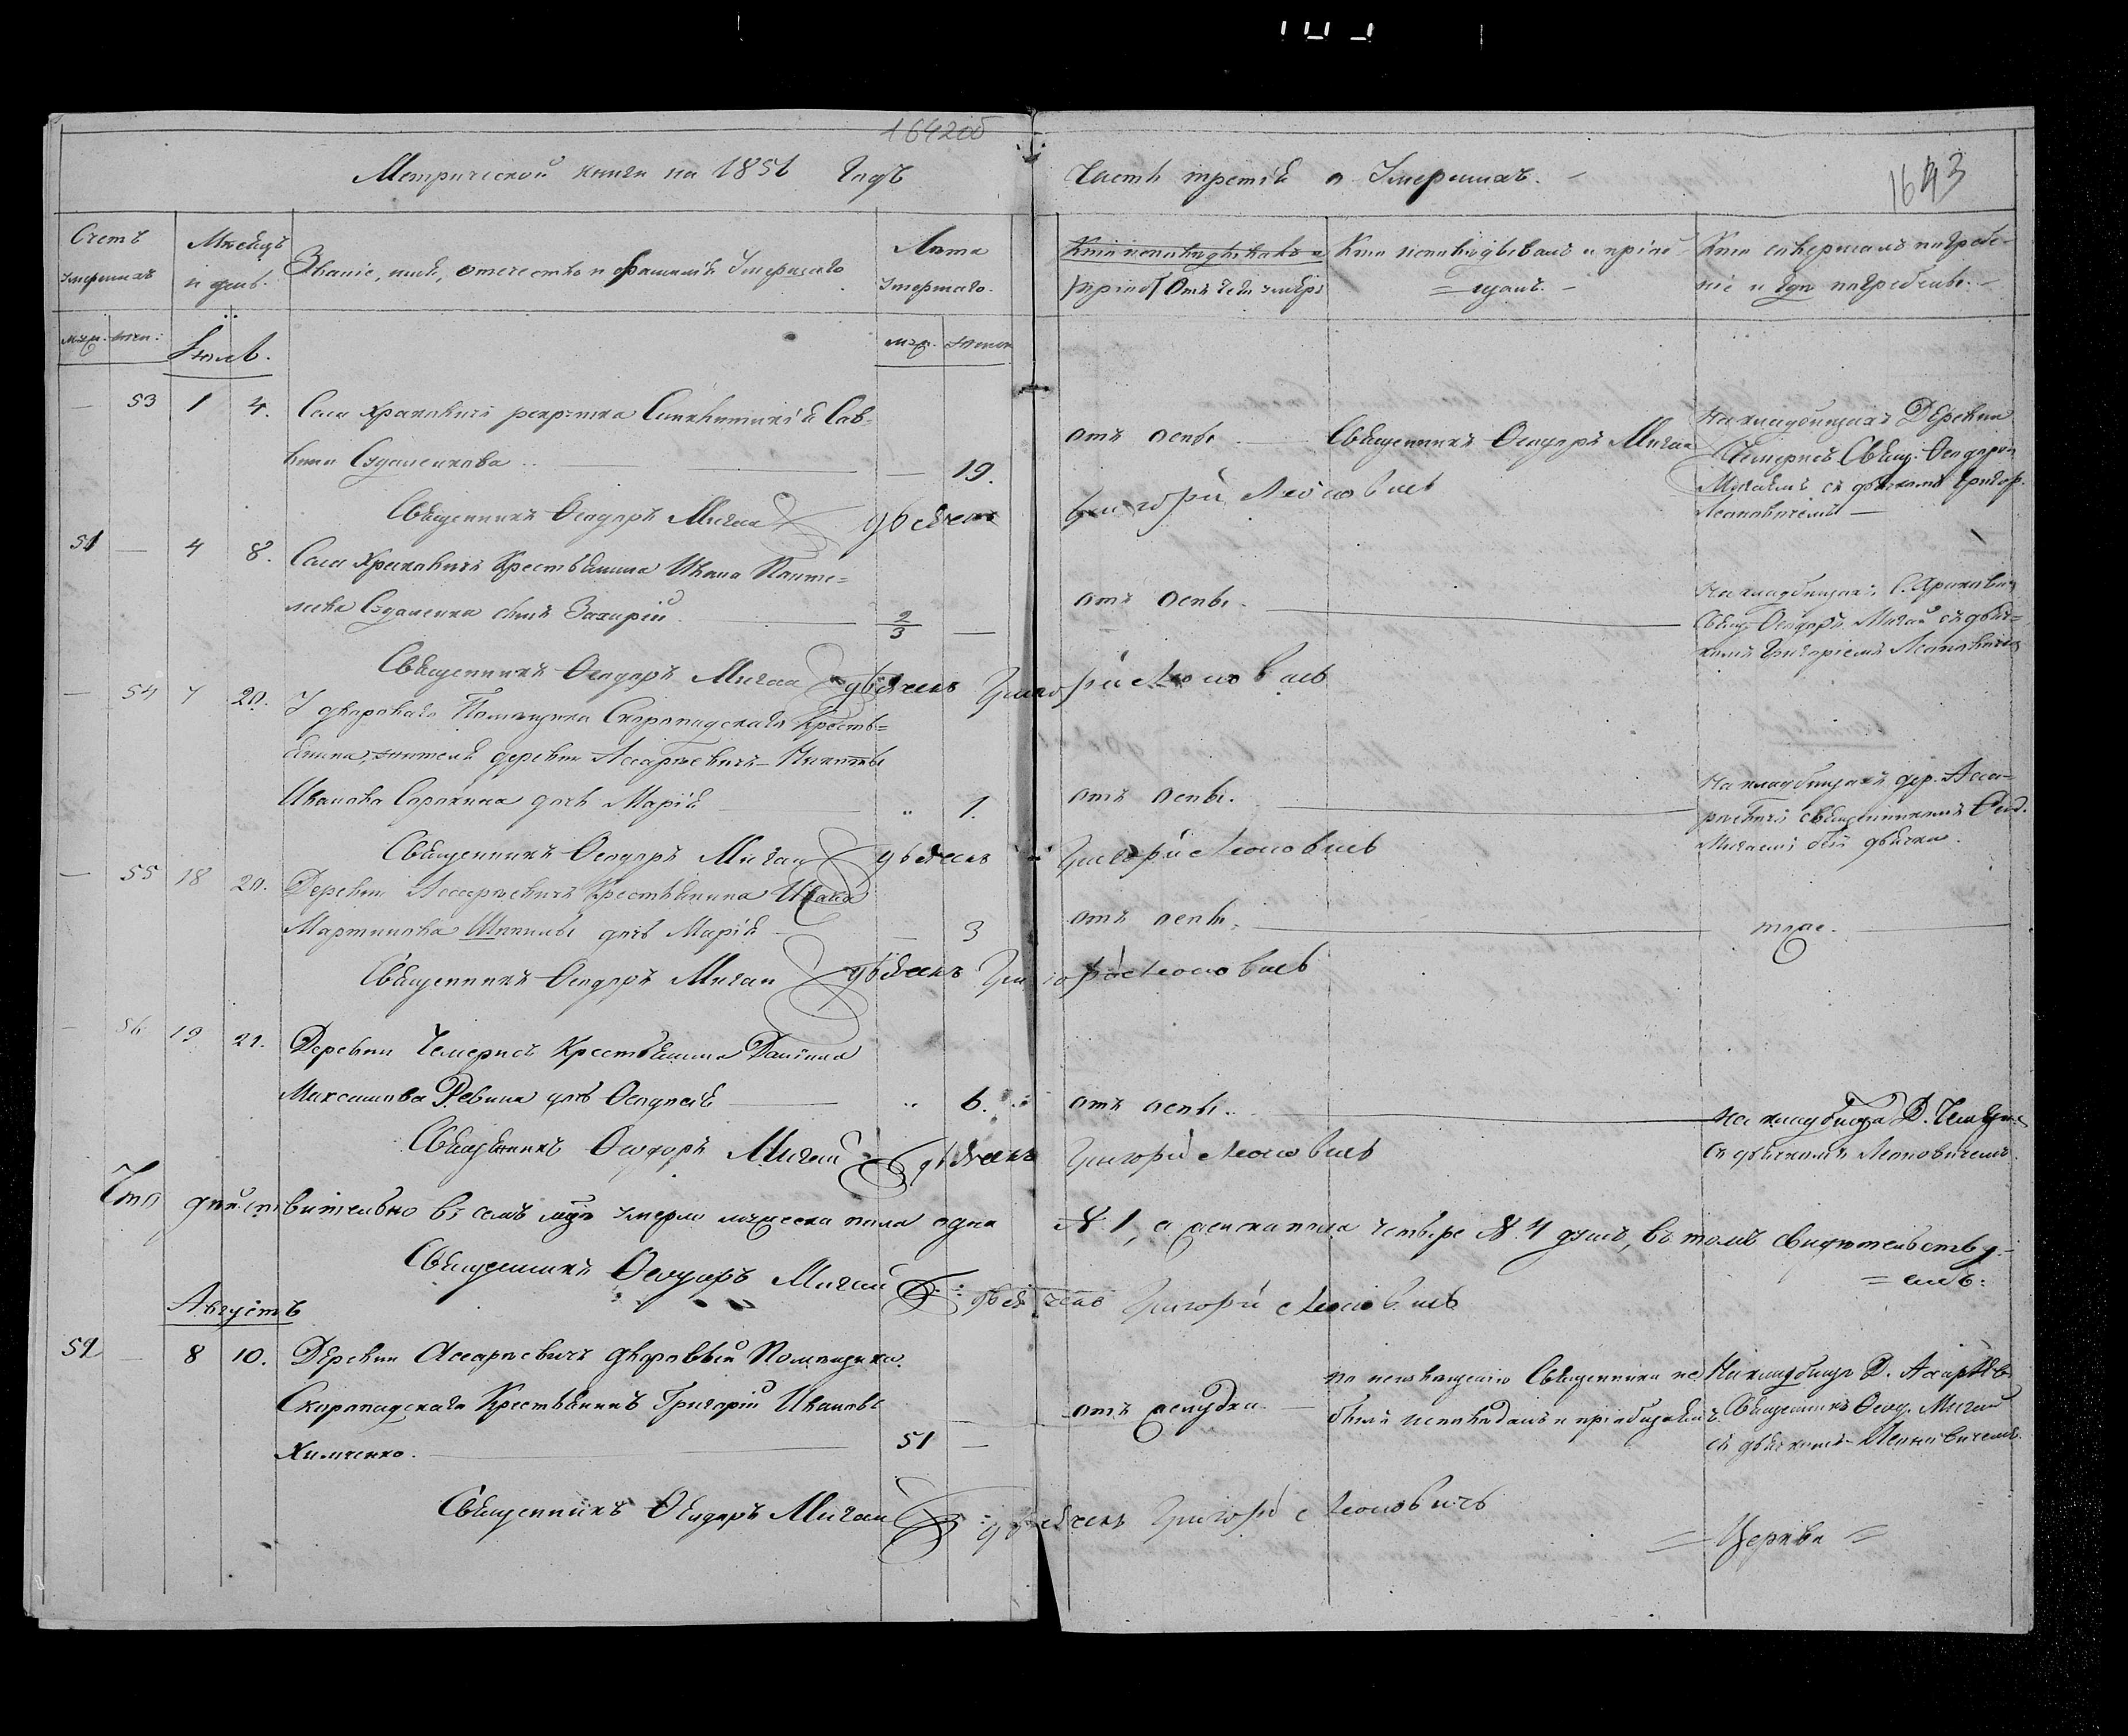 1642об
Метрической книги на 1851 годъ
Часть третія о Умершихъ.
1643
Счетъ умершихъ
Мѣсяцъ и день.
Званіе, имя, отечество и фамилія Умершаго
Лѣта Умершаго.
Кто исповѣдывалъ и
Отъ чего умеръ
Кто исповѣдывалъ и пріобщалъ.
Кто совершалъ погребеніе и гдѣ погребены.
муж. жен:
Іюль.
муж. женск
— 53 1 4. Села
рекрутка
Сав-
19.
отъ оспы. Священникъ Ѳеодоръ Мигай
На кладбищахъ Деревни
Чемерисъ Свящ. Ѳеодоръ
Мигаемъ съ дьячкомъ Григор.
Леоновичемъ —
Священникъ Ѳеодоръ Мигай дьячекъ Григорій Леоновичъ
51 — 4 8. Села Крестьянина Ивана Панте-
лева сынъ Захарій 2/3 —
отъ оспы.
На кладбищахъ С.
Свящ. Ѳеодоръ Мигай съ дьяч-
комъ Григоріемъ Леоновичемъ
Священникъ Ѳеодоръ Мигай дьячекъ Григорій Леоновичъ
— 54 7 20. У двороваго Помѣщика Скоропадскаго Кресть-
янина, жителя деревни Ассаревичъ Никиты
Иванова Сорокина дочь Марія „ 1.
отъ оспы.
На кладбищахъ дер. Асса-
ревичъ священникомъ Ѳеод.
Мигаемъ безъ дьячка.
Священникъ Ѳеодоръ Мигай дьячекъ Григорій Леоновичъ
— 55 18 20. Деревни Ассаревичъ Крестьянина Ивана
Мартинова дочь Марія — 3
отъ оспы.
тоже.
Священникъ Ѳеодоръ Мигай дьячекъ Григорій Леоновичъ
— 56 19 21. Деревни Чемерисъ Крестьянина Даніила
Максимова Ревина дочь „ 6.
отъ оспы.
На кладбища Д. Чемерисъ
съ дьячкомъ Леоновичемъ.
Священникъ Ѳеодоръ Мигай дьячекъ Григорій Леоновичъ
Что дѣйствительно въ семъ мцѣ умерло мужеска пола одна № 1, а женска пола четыре № 4 душъ, въ томъ свидѣтельству-
=емъ:
Священникъ Ѳеодоръ Мигай дьячекъ Григорій Леоновичъ
Августъ
52 — 8 10. Деревни Ассаревичъ дворовый Помѣщика
Скоропадскаго Крестьянинъ Григорій Ивановъ
Химченко. 51 —
отъ
по неизвѣщенію Священника не
былъ исповѣданъ и пріобщаемъ.
На кладбищѣ Д. Ассаревичъ
Священникъ Ѳеод. Мигай
съ дьячкомъ Леоновичемъ.
Священникъ Ѳеодоръ Мигай дьячекъ Григорій Леоновичъ
= Церкви =